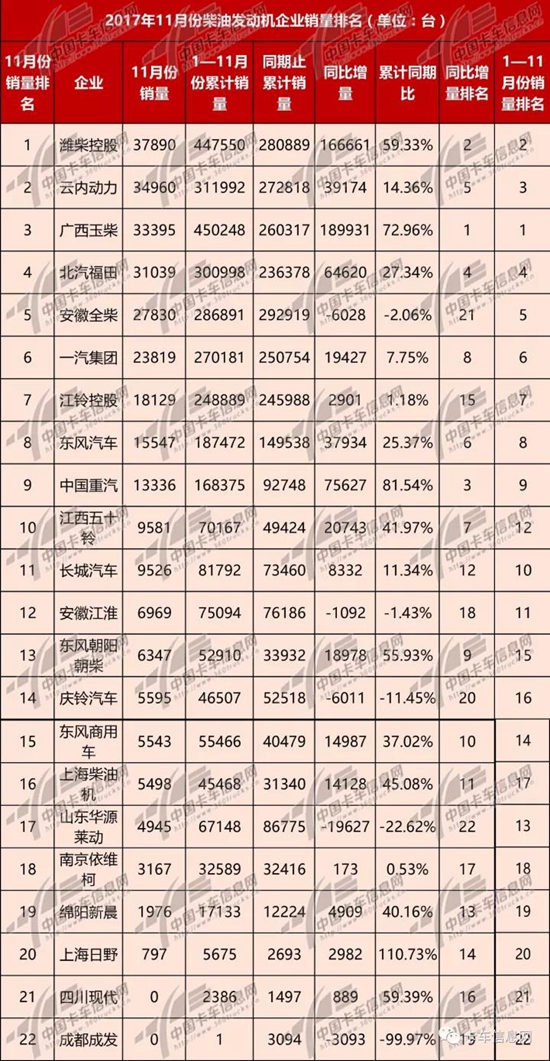 2017年11月份柴油发动机企业销量排名（单位：台）
11月份销量排名 企业 11月份销量 1—11月份累计销量 同期止累计销量 同比增量 累计同期比 同比增量排名 1—11月份销量排名
1 潍柴控股 37890 447550 280889 166661 59.33% 2 2
2 云内动力 34960 311992 272818 39174 14.36% 5 3
3 广西玉柴 33395 450248 260317 189931 72.96% 1 1
4 北汽福田 31039 300998 236378 64620 27.34% 4 4
5 安徽全柴 27830 286891 292919 -6028 -2.06% 21 5
6 一汽集团 23819 270181 250754 19427 7.75% 8 6
7 江铃控股 18129 248889 245988 2901 1.18% 15 7
8 东风汽车 15547 187472 149538 37934 25.37% 6 8
9 中国重汽 13336 168375 92748 75627 81.54% 3 9
10 江西五十铃 9581 70167 49424 20743 41.97% 7 12
11 长城汽车 9526 81792 73460 8332 11.34% 12 10
12 安徽江淮 6969 75094 76186 -1092 -1.43% 18 11
13 东风朝阳朝柴 6347 52910 33932 18978 55.93% 9 15
14 庆铃汽车 5595 46507 52518 -6011 -11.45% 20 16
15 东风商用车 5543 55466 40479 14987 37.02% 10 14
16 上海柴油机 5498 45468 31340 14128 45.08% 11 17
17 山东华源莱动 4945 67148 86775 -19627 -22.62% 22 13
18 南京依维柯 3167 32589 32416 173 0.53% 17 18
19 绵阳新晨 1976 17133 12224 4909 40.16% 13 19
20 上海日野 797 5675 2693 2982 110.73% 14 20
21 四川现代 0 2386 1497 889 59.39% 16 21
22 成都成发 0 1 3094 -3093 -99.97% 19 22
卡车信息网
中国卡车信息网